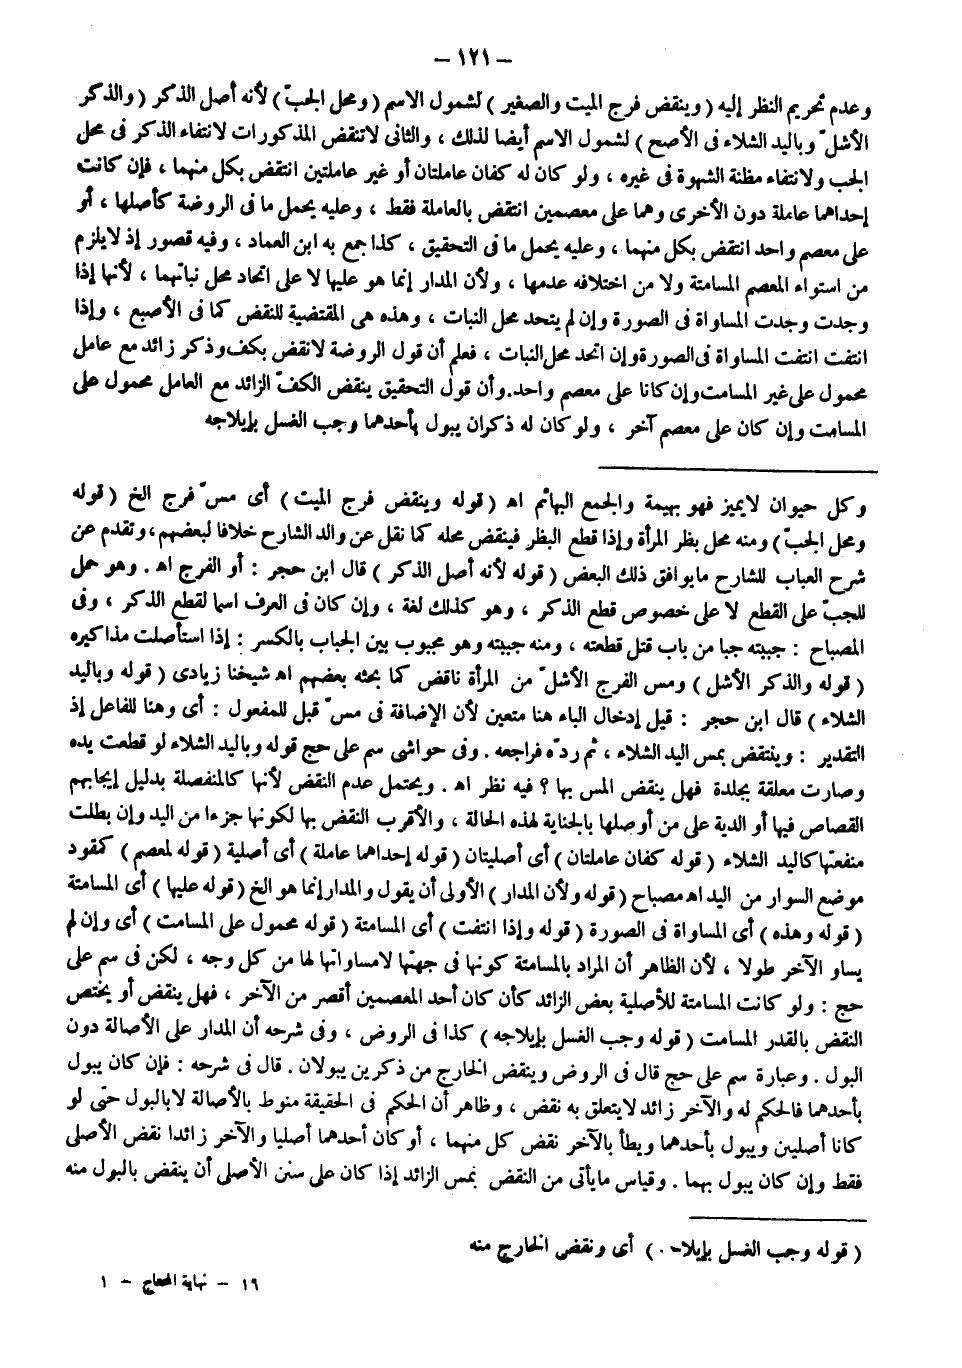 – ١٢١ –
وعدم تحريم النظر إليه ( وينقض فرج الميت والصغير ) لشمول الاسم ( ومحل الجبّ ) لأنه أصل الذكر ( والذكر
الأشلّ وباليد الشلاء فى الأصح ) لشمول الاسم أيضا لذلك ، والثانى لاتنقض المذكورات لانتفاء الذكر فى محل
الجب ولانتفاء مظنة الشهوة فى غيره ، ولو كان له كفان عاملتان أو غير عاملتين انتقض بكل منهما ، فإن كانت
إحداهما عاملة دون الأخرى وهما على معصمين انتقض بالعاملة فقط ، وعليه يحمل ما فى الروضة كأصلها ، أو
على معصم واحد انتقض بكل منهما ، وعليه يحمل ما فى التحقيق ، كذا جمع به ابن العماد ، وفيه قصور إذ لايلزم
من استواء المعصم المسامتة ولا من اختلافه عدمها ، ولأن المدار إنما هو عليها لا على اتحاد محل نباتهما ، لأنها إذا
وجدت وجدت المساواة فى الصورة وإن لم يتحد محل النبات ، وهذه هى المقتضية للنقض كما فى الأصبع ، وإذا
انتفت انتفت المساواة فى الصورة وإن اتحد محل النبات ، فعلم أن قول الروضة لانقض بكف وذكر زائد مع عامل
محمول على غير المسامت وإن كانا على معصم واحد. وأن قول التحقيق ينقض الكفّ الزائد مع العامل محمول على
المسامت وإن كان على معصم آخر ، ولو كان له ذكران يبول بأحدهما وجب الغسل بإيلاجه
وكل حيوان لايميز فهو بهيمة والجمع البهائم اه ( قوله وينقض فرج الميت ) أى مسّ فرج الخ ( قوله
ومحل الجبّ ) ومنه محل بظر المرأة وإذا قطع البظر فينقض محله كما نقل عن والد الشارح خلافا لبعضهم ، وتقدم عن
شرح العباب للشارح مايوافق ذلك البعض ( قوله لأنه أصل الذكر ) قال ابن حجر : أو الفرج اه . وهو حمل
للجبّ على القطع لا على خصوص قطع الذكر ، وهو كذلك لغة ، وإن كان فى العرف اسما لقطع الذكر ، وفى
المصباح : جببته جبا من باب قتل قطعته ، ومنه جببته وهو مجبوب بين الجباب بالكسر : إذا استأصلت مذاكيره
( قوله والذكر الأشل ) ومس الفرج الأشلّ من المرأة ناقض كما بحثه بعضهم اه شيخنا زيادى ( قوله وباليد
الشلاء ) قال ابن حجر : قيل إدخال الباء هنا متعين لأن الإضافة فى مسّ قبل للمفعول : أى وهنا للفاعل إذ
التقدير : وينتقض بمس اليد الشلاء ، ثم ردّه فراجعه . وفى حواشى سم على حج قوله وباليد الشلاء لو قطعت يده
وصارت معلقة بجلدة فهل ينقض المس بها ؟ فيه نظر اه . ويحتمل عدم النقض لأنها كالمنفصلة بدليل إيجابهم
القصاص فيها أو الدية على من أوصلها بالجناية لهذه الحالة ، والأقرب النقض بها لكونها جزءا من اليد وإن بطلت
منفعتها كاليد الشلاء ( قوله كفان عاملتان ) أى أصليتان ( قوله إحداهما عاملة ) أى أصلية ( قوله لمعصم ) كمقود
موضع السوار من اليد اه مصباح ( قوله ولأن المدار ) الأولى أن يقول والمدار إنما هو الخ ( قوله عليها ) أى المسامتة
( قوله وهذه ) أى المساواة فى الصورة ( قوله وإذا انتفت ) أى المسامتة ( قوله محمول على المسامت ) أى وإن لم
يساو الآخر طولا ، لأن الظاهر أن المراد بالمسامتة كونها فى جهتها لامساواتها لها من كل وجه ، لكن فى سم على
حج : ولو كانت المسامتة للأصلية بعض الزائد كأن كان أحد المعصمين أقصر من الآخر ، فهل ينقض أو يختص
النقض بالقدر المسامت ( قوله وجب الغسل بإيلاجه ) كذا فى الروض ، وفى شرحه أن المدار على الأصالة دون
البول . وعبارة سم على حج قال فى الروض وينقض الخارج من ذكرين يبولان . قال فى شرحه : فإن كان يبول
بأحدهما فالحكم له والآخر زائد لايتعلق به نقض ، وظاهر أن الحكم فى الحقيقة منوط بالأصالة لابالبول حتّى لو
كانا أصليين ويبول بأحدهما ويطأ بالآخر نقض كل منهما ، أو كان أحدهما أصليا والآخر زائدا نقض الأصلى
فقط وإن كان يبول بهما . وقياس مايأتى من النقض بمس الزائد إذا كان على سنن الأصلى أن ينقض بالبول منه
( قوله وجب الغسل بإيلا ) أى ونقض الخارج منه
١٦ – نهاية المحتاج – ١